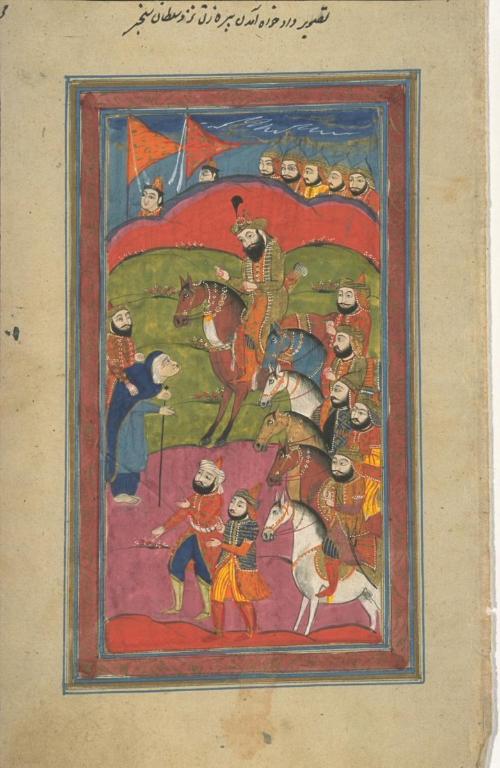 تصویر داد خواه آمدن پیره زنی نزد سلطان سنجر